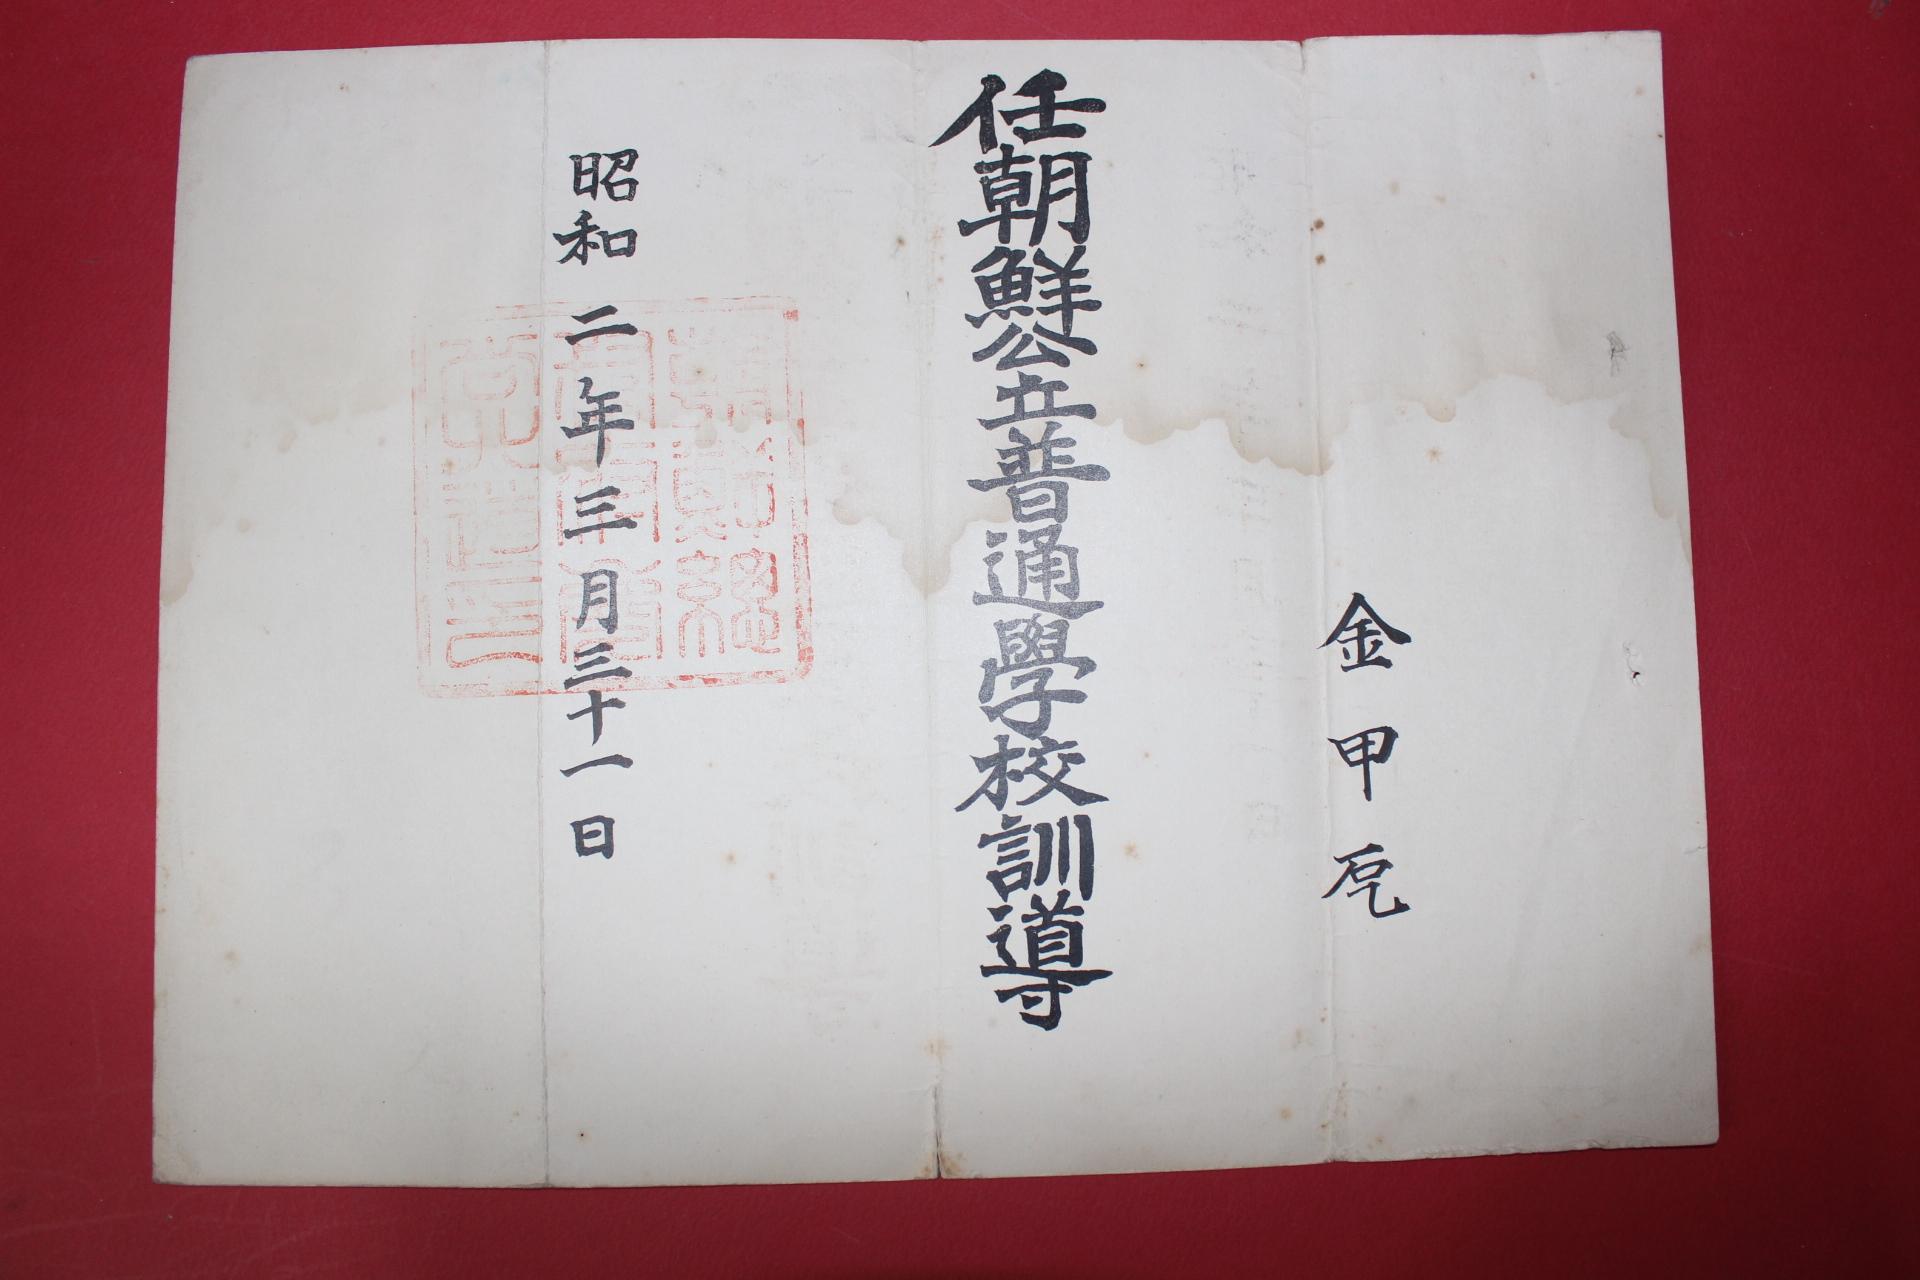 金甲乭
任朝鮮公立普通學校訓導
昭和二年三月三十一日